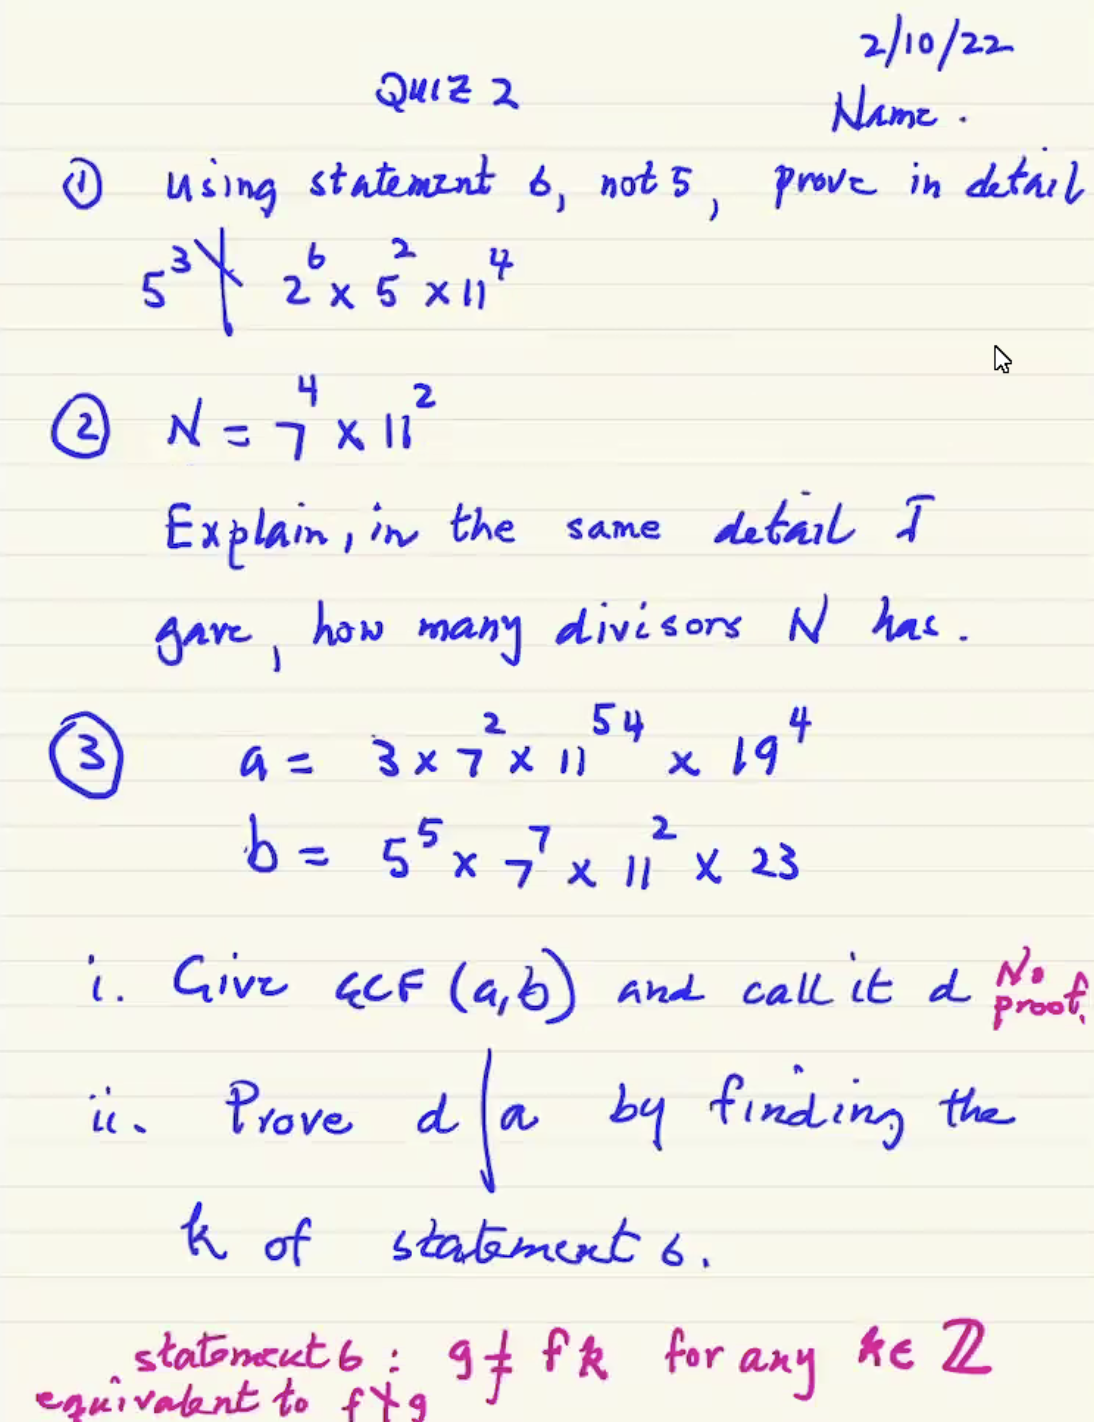 2/10/22
QUIZ 2
Name.
① Using statement 6, not 5, prove in detail
5³ ∤ 2⁶ × 5² × 11⁴
② N = 7⁴ × 11²
Explain, in the same detail I
gave, how many divisors N has.
③ a = 3 × 7² × 11⁵⁴ × 19⁴
b = 5⁵ × 7⁷ × 11² × 23
i. Give GCF (a,b) and call it d No proof.
ii. Prove d | a by finding the
k of statement 6.
statement 6 : g ≠ f k for any k ∈ ℤ
equivalent to f ∤ g